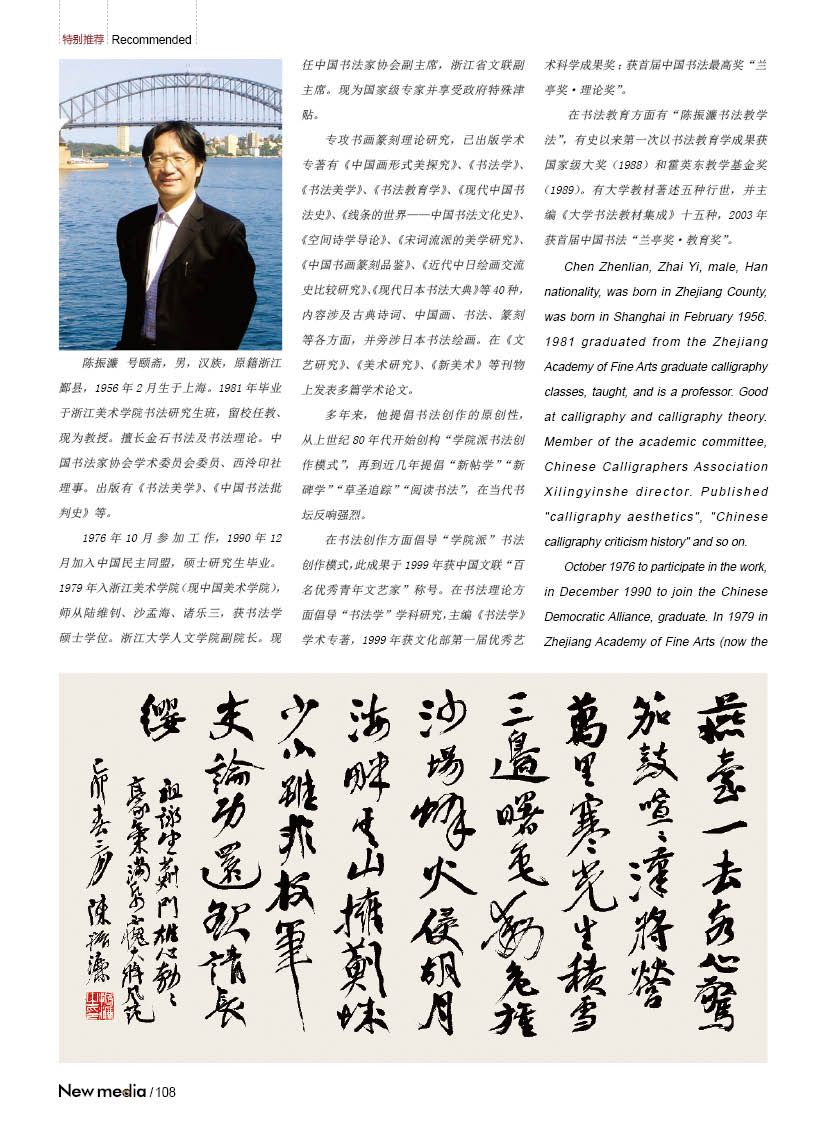 特别推荐 Recommended
陈振濂 号颐斋，男，汉族，原籍浙江
鄞县，1956 年 2 月生于上海。1981 年毕业
于浙江美术学院书法研究生班，留校任教、
现为教授。擅长金石书法及书法理论。中
国书法家协会学术委员会委员、西泠印社
理事。出版有《书法美学》、《中国书法批
判史》等。
1976 年 10 月 参 加 工 作，1990 年 12
月加入中国民主同盟，硕士研究生毕业。
1979 年入浙江美术学院（现中国美术学院），
师从陆维钊、沙孟海、诸乐三，获书法学
硕士学位。浙江大学人文学院副院长。现
任中国书法家协会副主席，浙江省文联副
主席。现为国家级专家并享受政府特殊津
贴。
专攻书画篆刻理论研究，已出版学术
专著有《中国画形式美探究》、《书法学》、
《书法美学》、《书法教育学》、《现代中国书
法史》、《线条的世界——中国书法文化史》、
《空间诗学导论》、《宋词流派的美学研究》、
《中国书画篆刻品鉴》、《近代中日绘画交流
史比较研究》、《现代日本书法大典》等 40 种，
内容涉及古典诗词、中国画、书法、篆刻
等各方面，并旁涉日本书法绘画。在《文
艺研究》、《美术研究》、《新美术》等刊物
上发表多篇学术论文。
多年来，他提倡书法创作的原创性，
从上世纪 80 年代开始创构“学院派书法创
作模式”，再到近几年提倡“新帖学”“新
碑学”“草圣追踪”“阅读书法”，在当代书
坛反响强烈。
在书法创作方面倡导“学院派”书法
创作模式，此成果于 1999 年获中国文联“百
名优秀青年文艺家”称号。在书法理论方
面倡导“书法学”学科研究，主编《书法学》
学术专著，1999 年获文化部第一届优秀艺
术科学成果奖；获首届中国书法最高奖“兰
亭奖·理论奖”。
在书法教育方面有“陈振濂书法教学
法”，有史以来第一次以书法教育学成果获
国家级大奖（1988）和霍英东教学基金奖
（1989）。有大学教材著述五种行世，并主
编《大学书法教材集成》十五种，2003 年
获首届中国书法“兰亭奖·教育奖”。
Chen Zhenlian, Zhai Yi, male, Han
nationality, was born in Zhejiang County,
was born in Shanghai in February 1956.
1981 graduated from the Zhejiang
Academy of Fine Arts graduate calligraphy
classes, taught, and is a professor. Good
at calligraphy and calligraphy theory.
Member of the academic committee,
Chinese Calligraphers Association
Xilingyinshe director. Published
"calligraphy aesthetics", "Chinese
calligraphy criticism history" and so on.
October 1976 to participate in the work,
in December 1990 to join the Chinese
Democratic Alliance, graduate. In 1979 in
Zhejiang Academy of Fine Arts (now the
燕臺一去客心驚
笳鼓喧喧漢將營
萬里寒光生積雪
三邊曙色動危旌
沙場烽火侵胡月
海畔雲山擁薊城
少小雖非投筆
吏論功還欲請長
纓
祖詠望薊門 雄心勃勃
豪氣滿篇 不愧大將風範
己卯春三月 陳振濂
New media / 108